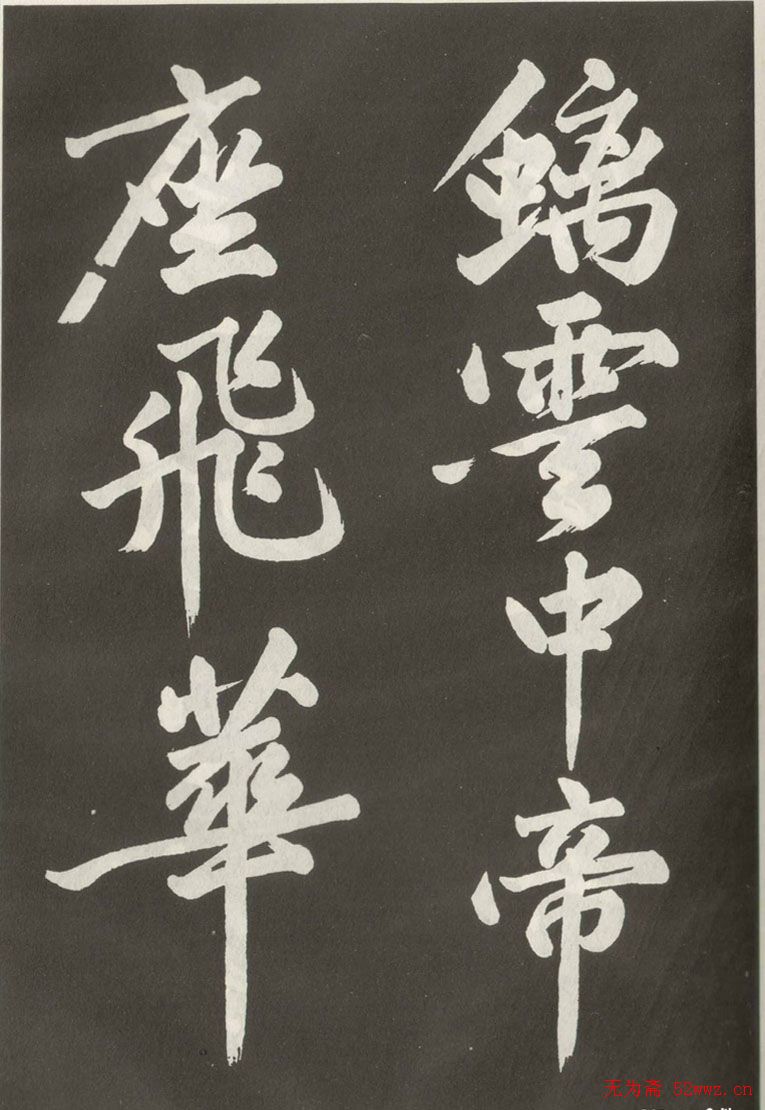 螭雲中帝
座飛華
无为斋 52wwz.cn